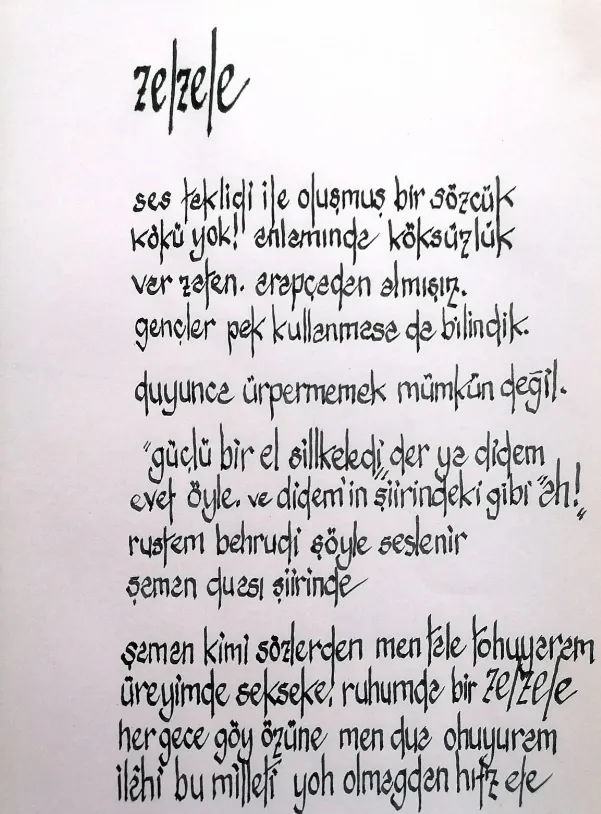 zelzele
ses taklidi ile oluşmuş bir sözcük
kökü yok! anlamında köksüzlük
var zaten. arapçadan almışız.
gençler pek kullanmasa da bilindik.
duyunca ürpermemek mümkün değil.
"güçlü bir el sillkeledi" der ya didem
evet öyle. ve didem'in şiirindeki gibi "ah!"
rustem behrudi şöyle seslenir
şaman duası şiirinde
şaman kimi sözlerden men tale tohuyaram
üreyimde sekseke, ruhumda bir zelzele
her gece göy özüne men dua ohuyuram
ilâhi bu milleti yoh olmagdan hıfz ele